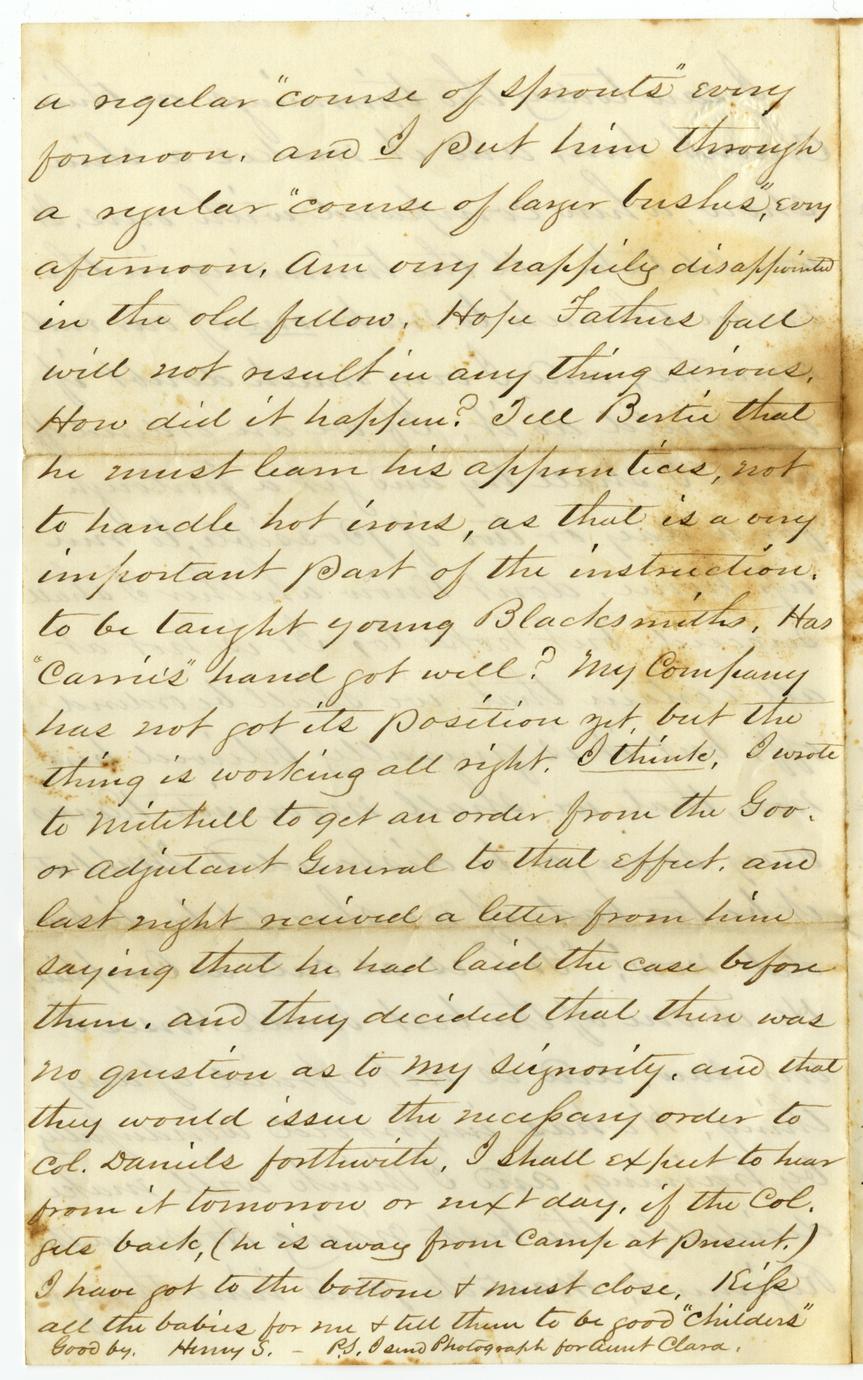 a regular "course of sprouts" every
forenoon. and I put him through
a regular "course of larger bushes", every
afternoon. Am very happily disappointed
in the old fellow. Hope Fathers fall
will not result in any thing serious.
How did it happen? Tell Bertie that
he must learn his apprentices, not
to handle hot irons, as that is a very
important part of the instruction.
to be taught young Blacksmiths. Has
"Carries" hand got well? My Company
has not got its position yet, but the
thing is working all right. I think. I wrote
to Mitchell to get an order from the Gov.
or Adjutant General to that effect. and
last night recieved a letter from him
saying that he had laid the case before
them. and they decided that there was
no question as to my signority. and that
they would issue the necessary order to
Col. Daniels forthwith. I shall expect to hear
from it tomorrow or next day. if the Col.
gets back, (he is away from Camp at present.)
I have got to the bottom & must close. Kiss
all the babies for me & tell them to be good "childers"
Good by. Henry S. - P.S. I send Photograph for Aunt Clara.